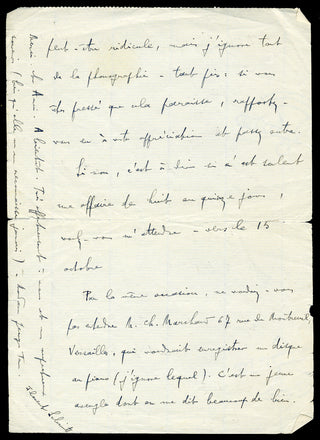 peut-être ridicule, mais j'ignore tout
de la phonographie - tant pis: si vous
êtes pressé que cela paraisse, rapportez-
vous en à votre appréciation et passez outre.
Si non, c'est à dire si c'est seulement
une affaire de huit ou quinze jours,
voulez-vous m'attendre - vers le 15
octobre
Par la même occasion, ne voudriez-vous
pas entendre M. Ch. Marchand 67 rue de Montreuil,
Versailles, qui voudrait enregistrer un disque
au piano (j'ignore lequel). C'est un jeune
aveugle dont on me dit beaucoup de bien.
Merci cher Ami. A bientôt. Très affectueusement